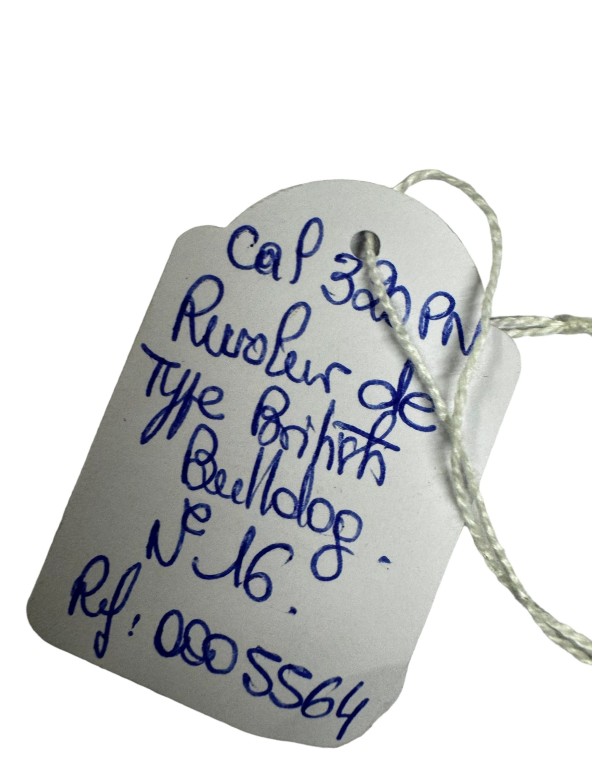 Cal 320 PN
Revolver de
Type British
Bulldog.
N° 16.
Ref: 0005564